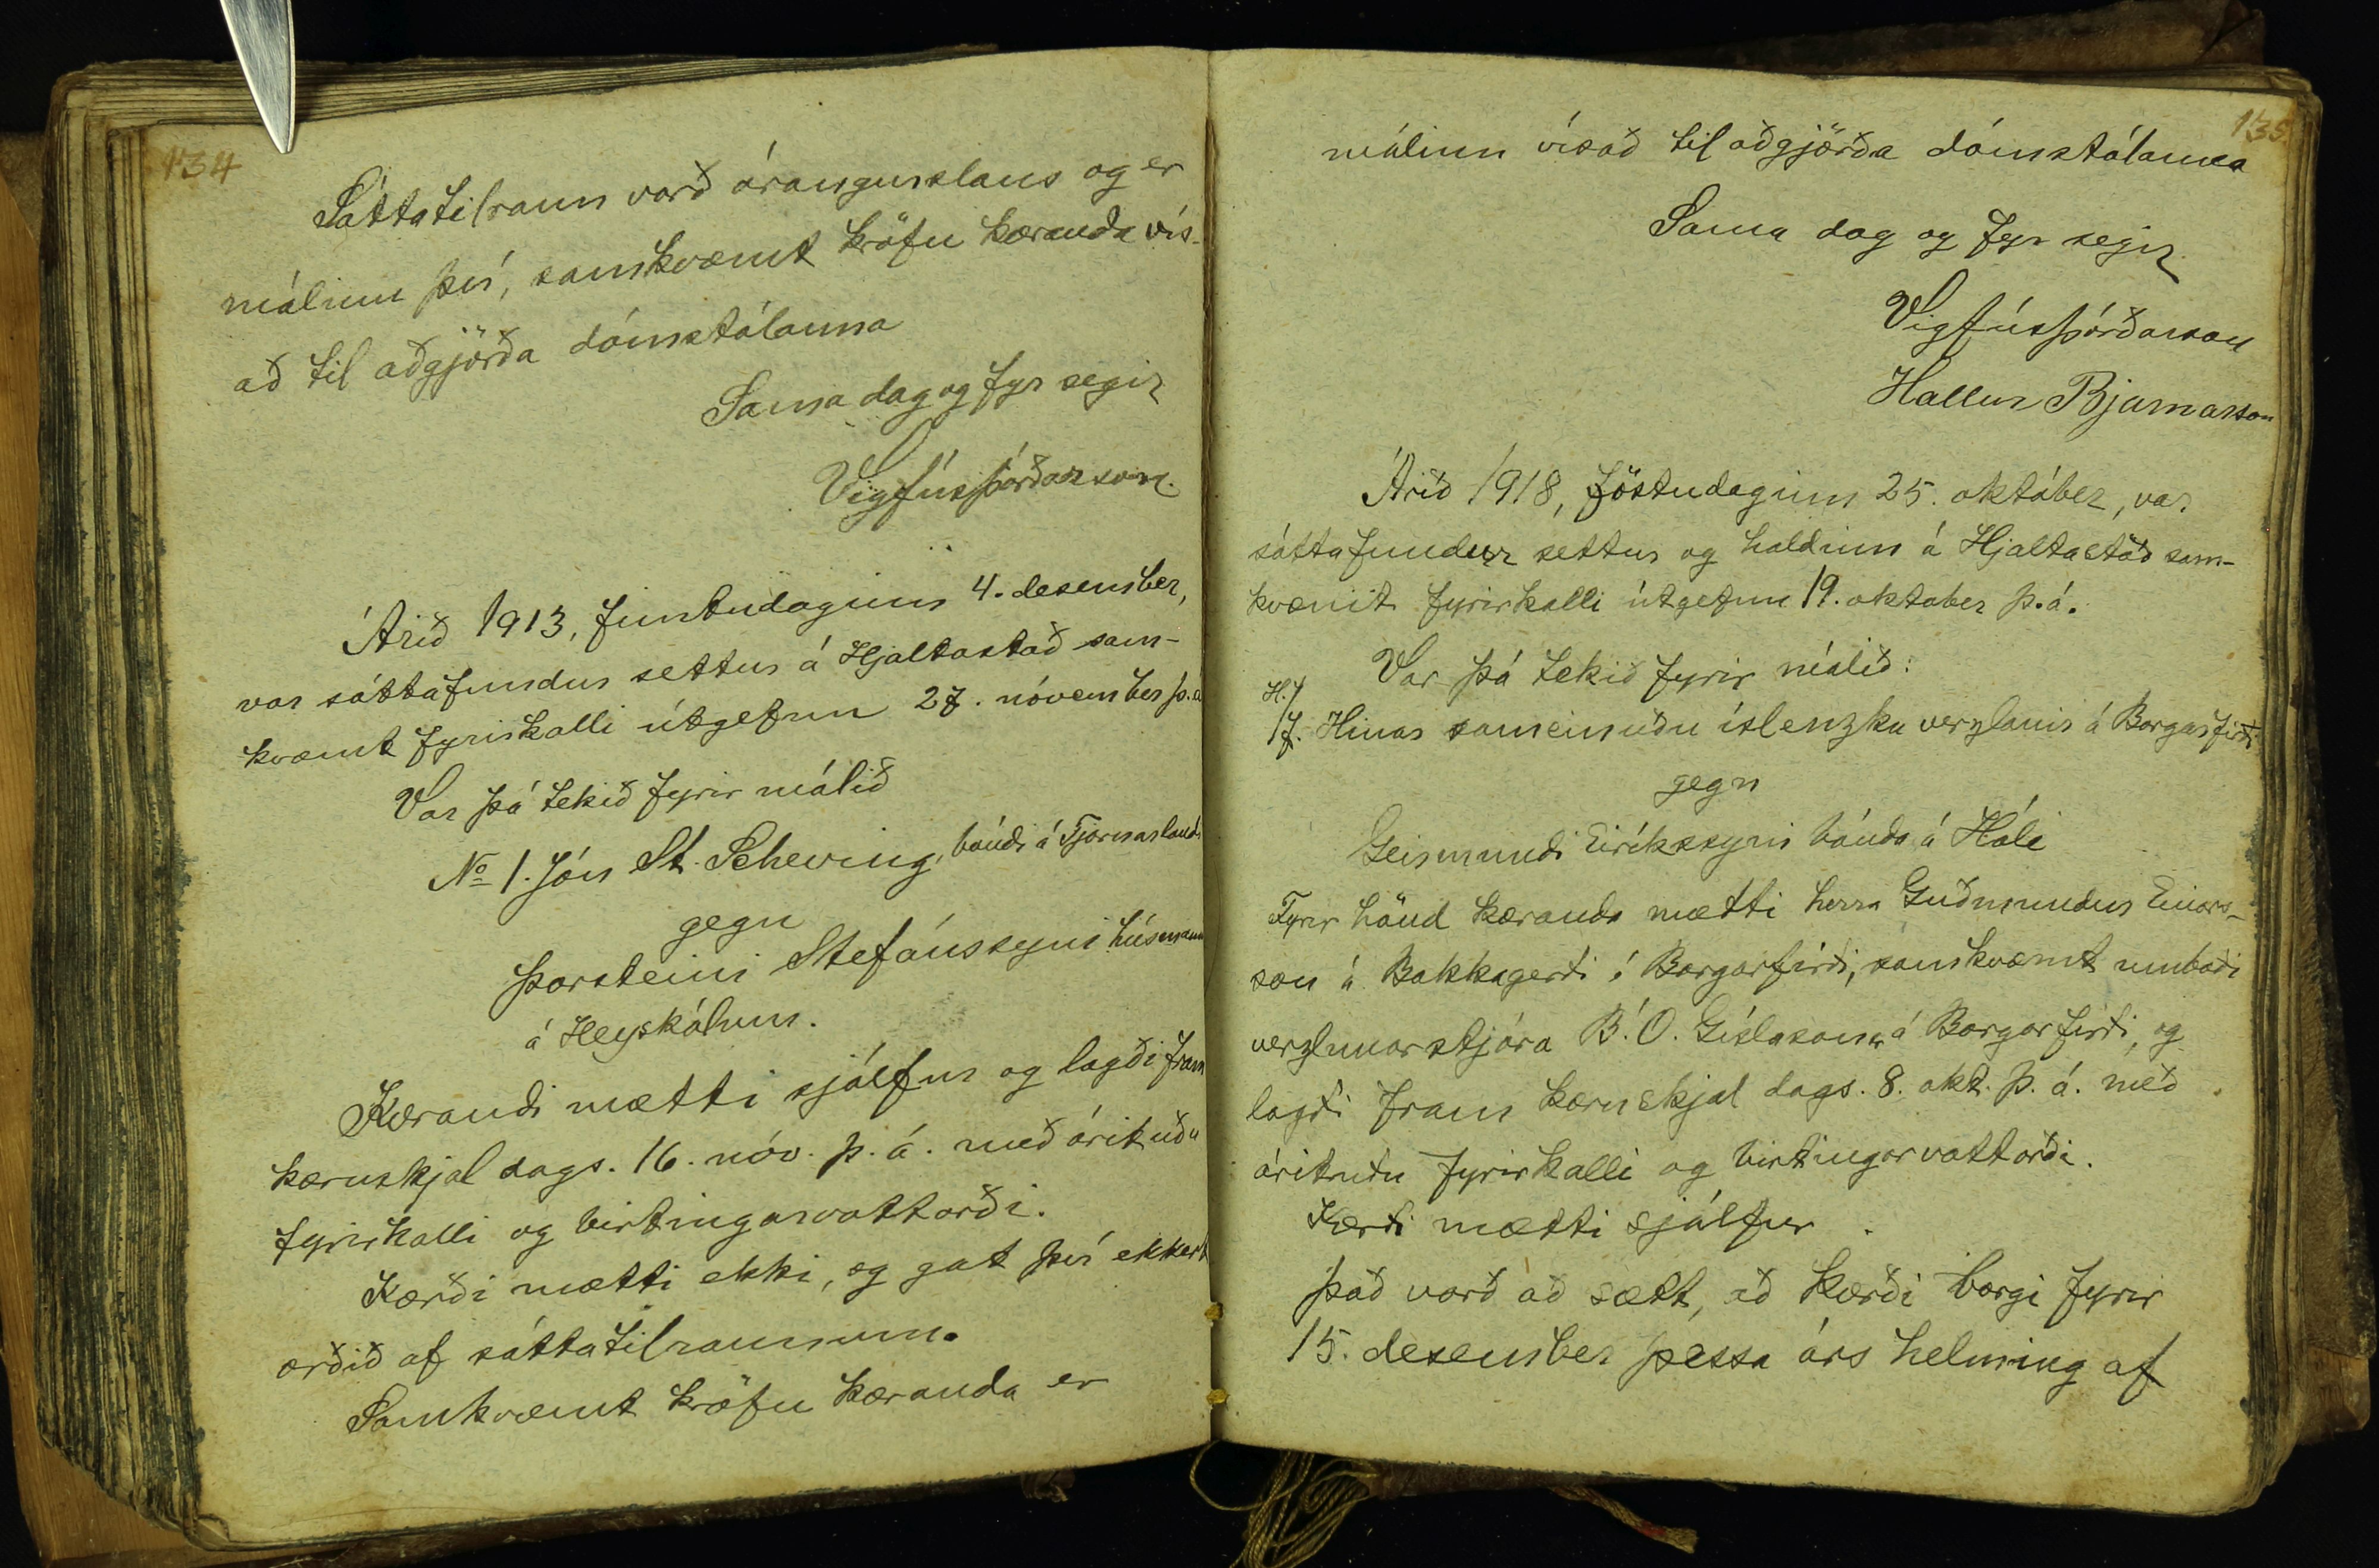 134
Sáttatilraun varð árangurslaus og er
málinu því, samkvæmt kröfu kæranda vís-
að til aðgjörða dómstólanna
Sama dag og fyr segir
Vigfús Þórðarson.
Árið 1913, fimtudaginn 4. desember,
var sáttafundur settur á Hjaltastað sam-
kvæmt fyrirkalli útgefnu 27. nóvember þ.á
Var þá tekið fyrir málið
No 1. Jón St. Scheving, bóndi á Tjarnarlandi
gegn
Þorsteini Stefánssyni húsmann
á Heyskálum.
Kærandi mætti sjálfur og lagði fram
kæruskjal dags. 16. nóv. þ. á. með árituðu
fyrirkalli og birtingarvottorði.
Kærði mætti ekki, og gat því ekkert
orðið af sáttatilraunum.
Samkvæmt kröfu kæranda er
135
málinu vísað til aðgjörða dómstólanna
Sama dag og fyr segir
Vigfús Þórðarson
Hallur Bjarnason
Árið 1918, föstudaginn 25. október, var
sáttafundur settur og haldinn á Hjaltastað sam-
kvæmt fyrirkalli útgefnu 19. oktober þ.á.
Var þá tekið fyrir málið:
H./
/f. Hinar sameinuðu íslenzku verzlanir á Borgarfirði
gegn
Geirmundi Eiríkssyni bónda á Hóli
Fyrir hönd kæranda mætti herra Guðmundur Einars-
son á Bakkagerði í Borgarfirði, samkvæmt umboði
verzlunarstjóra B. O. Gíslasonar á Borgarfirði, og
lagði fram kæruskjal dags. 8. okt. þ. á. með
árituðu fyrirkalli og birtingarvottorði.
Kærði mætti sjálfur.
Það varð að sætt, að kærði borgi fyrir
15. desember þessa árs helming af